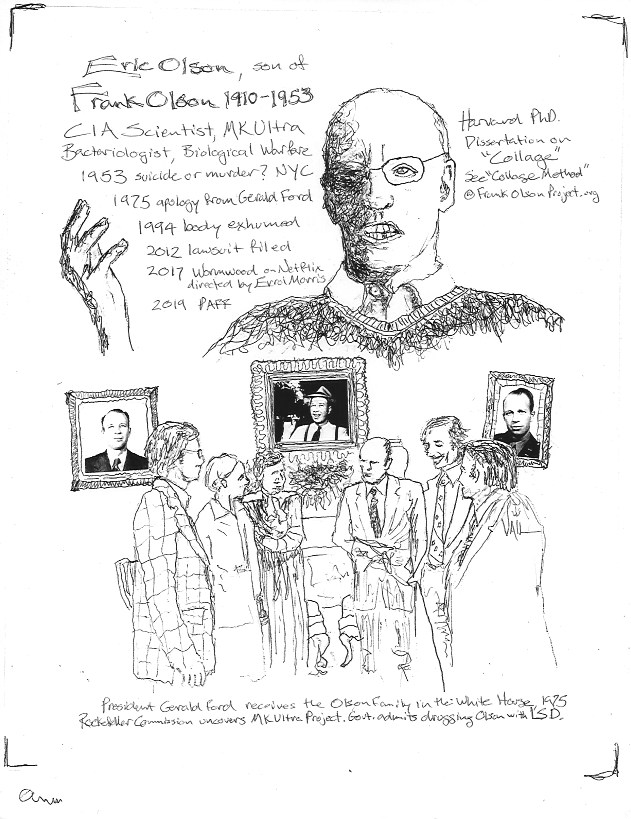 Eric Olson, son of
Frank Olson 1910-1953
CIA Scientist, MKUltra
Bacteriologist, Biological Warfare
1953 suicide or murder? NYC
1975 apology from Gerald Ford
1994 body exhumed
2012 lawsuit filed
2017 Wormwood on Netflix
directed by Errol Morris
2019 PAFF
Harvard PhD.
Dissertation on
"Collage"
See "Collage Method"
@ Frank Olson Project.org
President Gerald Ford receives the Olson Family in the White House, 1975
Rockefeller Commission uncovers MKUltra Project. Govt. admits drugging Olson with LSD.